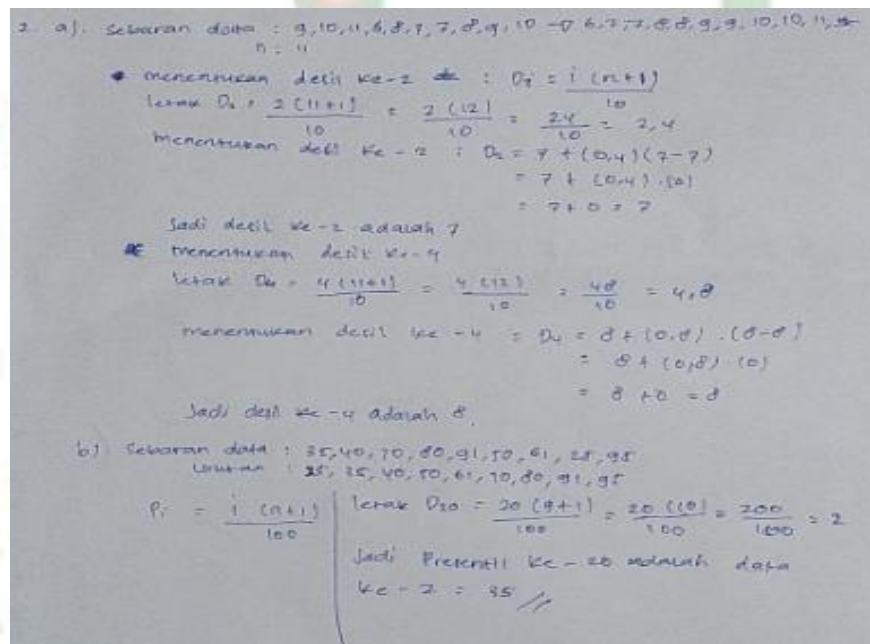 2. a). Sebaran data : 9,10,11,6,8,7,7,8,9,10 → 6,7,7,8,8,9,9,10,10,11,
n = 11
• menentukan desil ke-2 : Di = i (n+1) / 10
letak D2 = 2 (11+1) / 10 = 2 (12) / 10 = 24 / 10 = 2,4
menentukan desil ke-2 : D2 = 7 + (0,4) (7-7)
= 7 + (0,4) . (0)
= 7 + 0 = 7
Jadi desil ke-2 adalah 7
menentukan desil ke-4
letak D4 = 4 (11+1) / 10 = 4 (12) / 10 = 48 / 10 = 4,8
menentukan desil ke-4 = D4 = 8 + (0,8) . (8-8)
= 8 + (0,8) . (0)
= 8 + 0 = 8
Jadi desil ke-4 adalah 8.
b) Sebaran data : 35, 40, 70, 80, 91, 50, 61, 25, 95
Urutan : 25, 35, 40, 50, 61, 70, 80, 91, 95
Pi = i (n+1) / 100
letak D20 = 20 (9+1) / 100 = 20 (10) / 100 = 200 / 100 = 2
Jadi Presentil ke-20 adalah data
ke-2 = 35 //